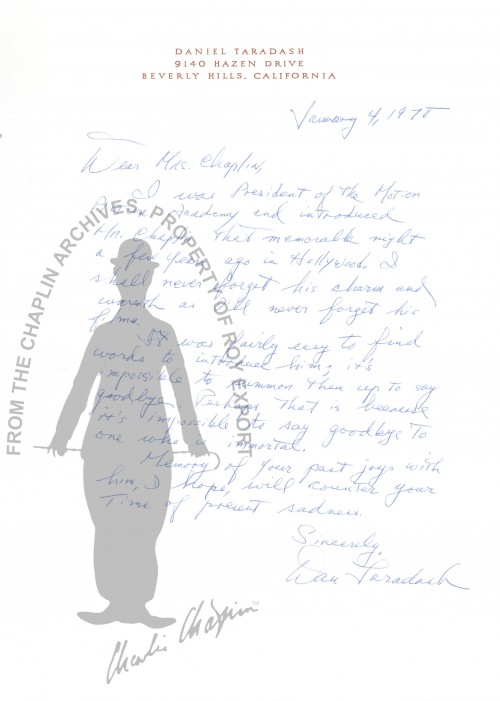 DANIEL TARADASH
9140 HAZEN DRIVE
BEVERLY HILLS, CALIFORNIA
January 4, 1978
Dear Mrs. Chaplin,
I was President of the Motion
Picture Academy and introduced
Mr. Chaplin that memorable night
a few years ago in Hollywood. I
shall never forget his charm and
warmth as I will never forget his
films.
It was fairly easy to find
words to introduce him; it's
impossible to summon them up to say
goodbye. Perhaps that is because
it's impossible to say goodbye to
one who is immortal.
Memory of your past joys with
him, I hope, will counter your
time of present sadness.
Sincerely,
Dan Taradash
FROM THE CHAPLIN ARCHIVES, PROPERTY OF ROY EXPORT
Charlie Chaplin™